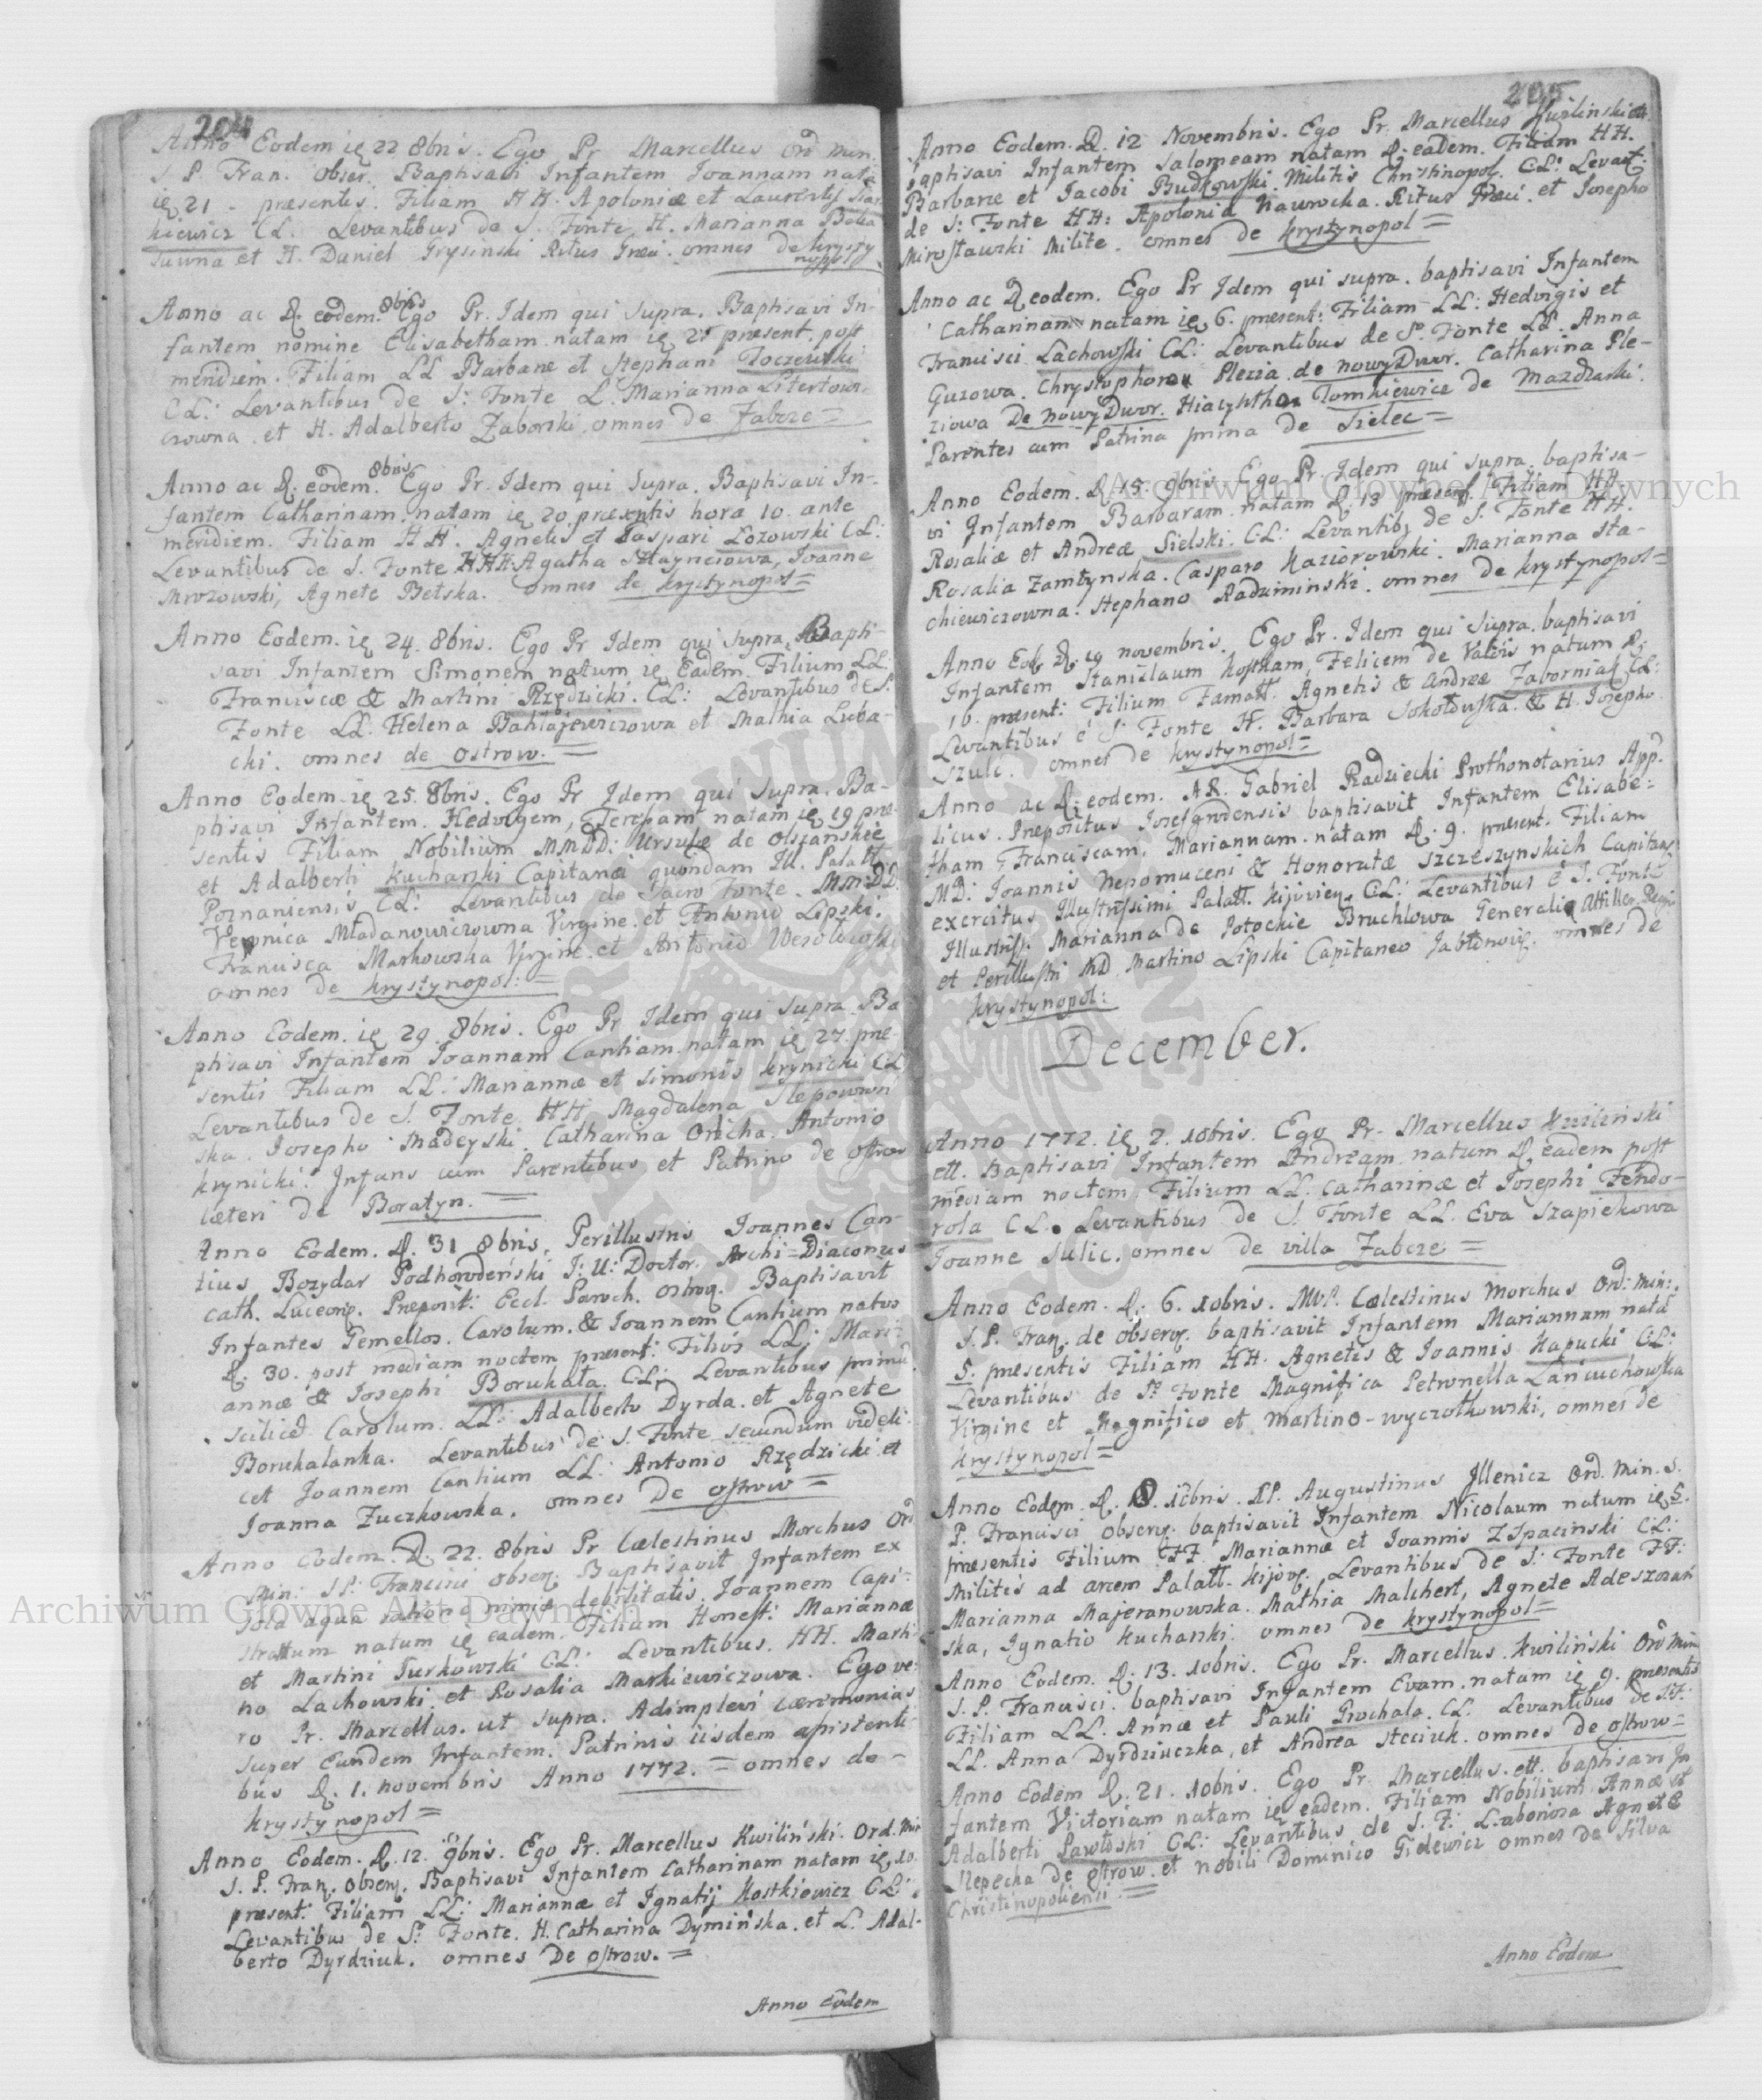 204
Anno Eodem ię 22 8bris. Ego Pr Marcellus Ord Min.
S P. Fran. Obser. Baptisavi Infantem Joannam nata
ię 21 - præsentis. Filiam HH. Apoloniæ et Laurentij
kiewicz CL. Levantibus de S. Fonte H. Marianna
et H. Daniel Grysinski Ritus Græci. omnes de krysty
nopoly
Anno ac D. eodem. 8bris Ego Pr. Idem qui supra. Baptisavi In-
fantem nomine Elisabetham natam ię 21 present. post
meridiem. Filiam LL Barbaræ et Stephani Toczewski
CL: Levantibus de S: Fonte L. Marianna
czowna. et H. Adalberto Zaborski. omnes de Zabcze =
Anno ac D. eodem. 8bris Ego Pr. Idem qui Supra. Baptisavi In-
fantem Catharinam. natam ię 20. præsentis hora 10. ante
meridiem. Filiam HH. Agnetis et Gaspari Łozowski CL:
Levantibus de S. Fonte HHH. Agatha Haynciowa, Joanne
Mrozowski, Agnete Betska. omnes de krystynopol =
Anno Eodem. ię 24. 8bris. Ego Pr Idem qui supra Bapti-
savi Infantem Simonem natum ię Eadem. Filium LL.
Franciscæ & Martini Rzędzicki. CL: Levantibus de S.
Fonte LL. Helena Bahłajewiczowa et Mathia Luba-
chi. omnes de Ostrow. =
Anno Eodem. ię 25. 8bris. Ego Pr Idem qui supra. Ba-
ptisavi Infantem. Hedvigem, Teresam natam ię 19 præ-
sentis Filiam Nobilium MMDD: Ursulæ de Olszanskie
et Adalberti Kucharski Capitanei quondam Ill. Palatt.
Poznaniensis CL: Levantibus de Sacro Fonte. MM:DD.
Veronica Mładanowiczowna Virgine. et Antonio Lipski.
Francisca Markowska Virgine. et Antonio Wesołowski
omnes de krystynopol: =
Anno Eodem. ię 29. 8bris. Ego Pr Idem qui supra Ba
ptisavi Infantem Joannam Cantiam. natam ię 27. præ
sentis Filiam LL: Mariannæ et Simonis krynicki CL
Levantibus de S. Fonte HH. Magdalena Slepowron
ska. Josepho Madeyski. Catharina Oricha. Antonio
krynicki. Infans cum Parentibus et Patrino de ostrow
cæteri de Boratyn. =
Anno Eodem. D. 31 8bris. Perillustris Joannes Can-
tius Bozydar Podhorodeński J: U: Doctor. Archi-Diaconus
Cath. Luceorię. Preposit. Eccl. Paroch. Ostrov. Baptisavit
Infantes Gemellos. Carolum. & Joannem Cantium natos
D. 30. post mediam noctem present: Filios LL: Mari-
annæ & Josephi Borukała. CL: Levantibus primū
scilicet Carolum. LL: Adalberto Dyrda. et Agnete
Borukalanka. Levantibus de S. Fonte secundum videli-
cet Joannem Cantium LL: Antonio Rzędzicki et
Joanna Zuczkowska. omnes De ostrow =
Anno Eodem. D. 22. 8bris Pr Cælestinus Morchus Ord
Min: S P: Francisci Obserq. Baptisavit Infantem ex
sola aqua ratione nimiæ debilitatis. Joannem Capi-
stratum natum ię eadem. Filium Honest: Mariannæ
et Martini Turkowski CL: Levantibus. HH. Marti-
no Lachowski. et Rosalia Markiewiczowa. Ego ve-
ro Pr. Marcellus. ut supra. Adimplevi cæremonias
super Eundem Infantem. Patrinis iisdem assistenti-
bus D. 1. novembris Anno 1772. = omnes de -
krystynopol =
Anno Eodem. D. 12. 9bris. Ego Pr. Marcellus Kwiliński. Ord. Min
S. P. Fran. Obserq. Baptisavi Infantem Catharinam natam ię 10.
præsent: Filiam LL: Mariannæ et Ignatij Kostkiewicz CL:
Levantibus de S: Fonte. H. Catharina Dymińska. et L. Adal-
berto Dyrdziuk. omnes De ostrow. =
Anno Eodem
205
Anno Eodem. D. 12 Novembris. Ego Pr. Marcellus Kwilinski ett.
baptisavi Infantem Salomeam natam D. eadem. Filiam HH.
Barbaræ et Jacobi Budkowski. Militis Christinopol. CL: Levant:
de S: Fonte HH: Apolonia Nawrocka. Ritus Græci. et Josepho
Mirosławski Milite. omnes de krystynopol =
Anno ac D. eodem. Ego Pr Idem qui supra. baptisavi Infantem
Catharinam natam ię 6. present: Filiam LL: Hedvigis et
Francisci Lachowski CL: Levantibus de S. Fonte LL. Anna
Guzowa. Chrystophoro Pleza de nowyDwor. Catharina Ple-
ziowa De nowyDwor. Hiacyntho Tomkiewicz de Mazdzarki.
Parentes cum Patrina prima de Sielec =
Anno Eodem. D. 15. 9bris Ego Pr Idem qui supra. baptisa-
vi Infantem Barbaram. natam D. 13 present. Filiam HH.
Rosaliæ et Andreæ Sielski. CL: Levantib; de S. Fonte HH.
Rosalia Zamłynska. Casparo Kaziorowski. Marianna Sta-
chiewiczowna. Stephano Radziminski. omnes de krystynopol =
Anno Eod. D. 19 novembris. Ego Pr. Idem qui supra. baptisavi
Infantem Stanislaum Kostkam, Felicem de Valois natum D.
16. present: Filium Famatt. Agnetis & Andreæ Zaborniak CL:
Levantibus è S. Fonte H. Barbara Sokołowska. & H. Josepho
Szulc. omnes de krystynopol =
Anno ac D. eodem. AR. Gabriel Radziecki Prothonotarius App.
licus. Prepositus Josefgrodensis baptisavit Infantem Elisabe-
tham Franciscam, Mariannam. natam D. 9. present. Filiam
MD: Joannis Nepomuceni & Honoratæ Szczeszynskich Capitan
exercitus Illustrissimi Palatt. Kijovien. CL: Levantibus è S. Fonte
Illustriss. Marianna de Potockie Bruchlowa Generali
et Perillustri MD Martino Lipski Capitaneo Jabłonov. omnes de
krystynopol:
December.
Anno 1772. ię 2. 10bris. Ego Pr. Marcellus Kwiliński
ett. Baptisavi Infantem Andream natum D. eadem post
mediam noctem Filium LL. Catharinæ et Josephi Fendo-
rola CL. Levantibus de S. Fonte LL. Eva Szapiekowa
Joanne Sulic. omnes de villa Zabcze =
Anno Eodem. D. 6. 10bris. MVP. Cælestinus Morchus Ord: Min:
S. P. Fran. de observ. baptisavit Infantem Mariannam natā
5. præsentis Filiam HH. Agnetis & Joannis Kapucki CL:
Levantibus de S: Fonte Magnifica Petronella Łańcuchowska
Virgine et Magnifico et Martino-wyczołkowski. omnes de
krystynopol =
Anno Eodem. D. 8. 10bris. PP. Augustinus Jllenicz Ord. Min. S.
P. Francisci observ. baptisavit Infantem Nicolaum natum ię 5.
præsentis Filium FF. Mariannæ et Joannis Zspacinski CL:
Militis ad arcem Palatt. Kijov. Levantibus de S: Fonte FF:
Marianna Majeranowska. Mathia Malchert, Agnete Adeszowń
ska, Ignatio Kucharski. omnes de krystynopol =
Anno Eodem. D. 13. 10bris. Ego Pr. Marcellus. Kwiliński Ord Min
S. P. Francisci. baptisavi Infantem Evam. natam ię 9. præsentis
Filiam LL. Annæ et Pauli Grochala. CL: Levantibus de S.F:
LL. Anna Dyrdziuczka, et Andrea Steciuk. omnes de ostrow =
Anno Eodem D. 21. 10bris. Ego Pr Marcellus. ett. baptisavi In
fantem Victoriam natam ię eadem. Filiam Nobilium Annæ et
Adalberti Pawłoski CL: Levantibus de S. F: Laboriosa Agnete
Slepecka de ostrow. et nobili Dominico Gidewicz omnes de Silva
Christinopoliensi. =
Anno Eodem
Archiwum Głowne Akt Dawnych
Archiwum Głowne Akt Dawnych